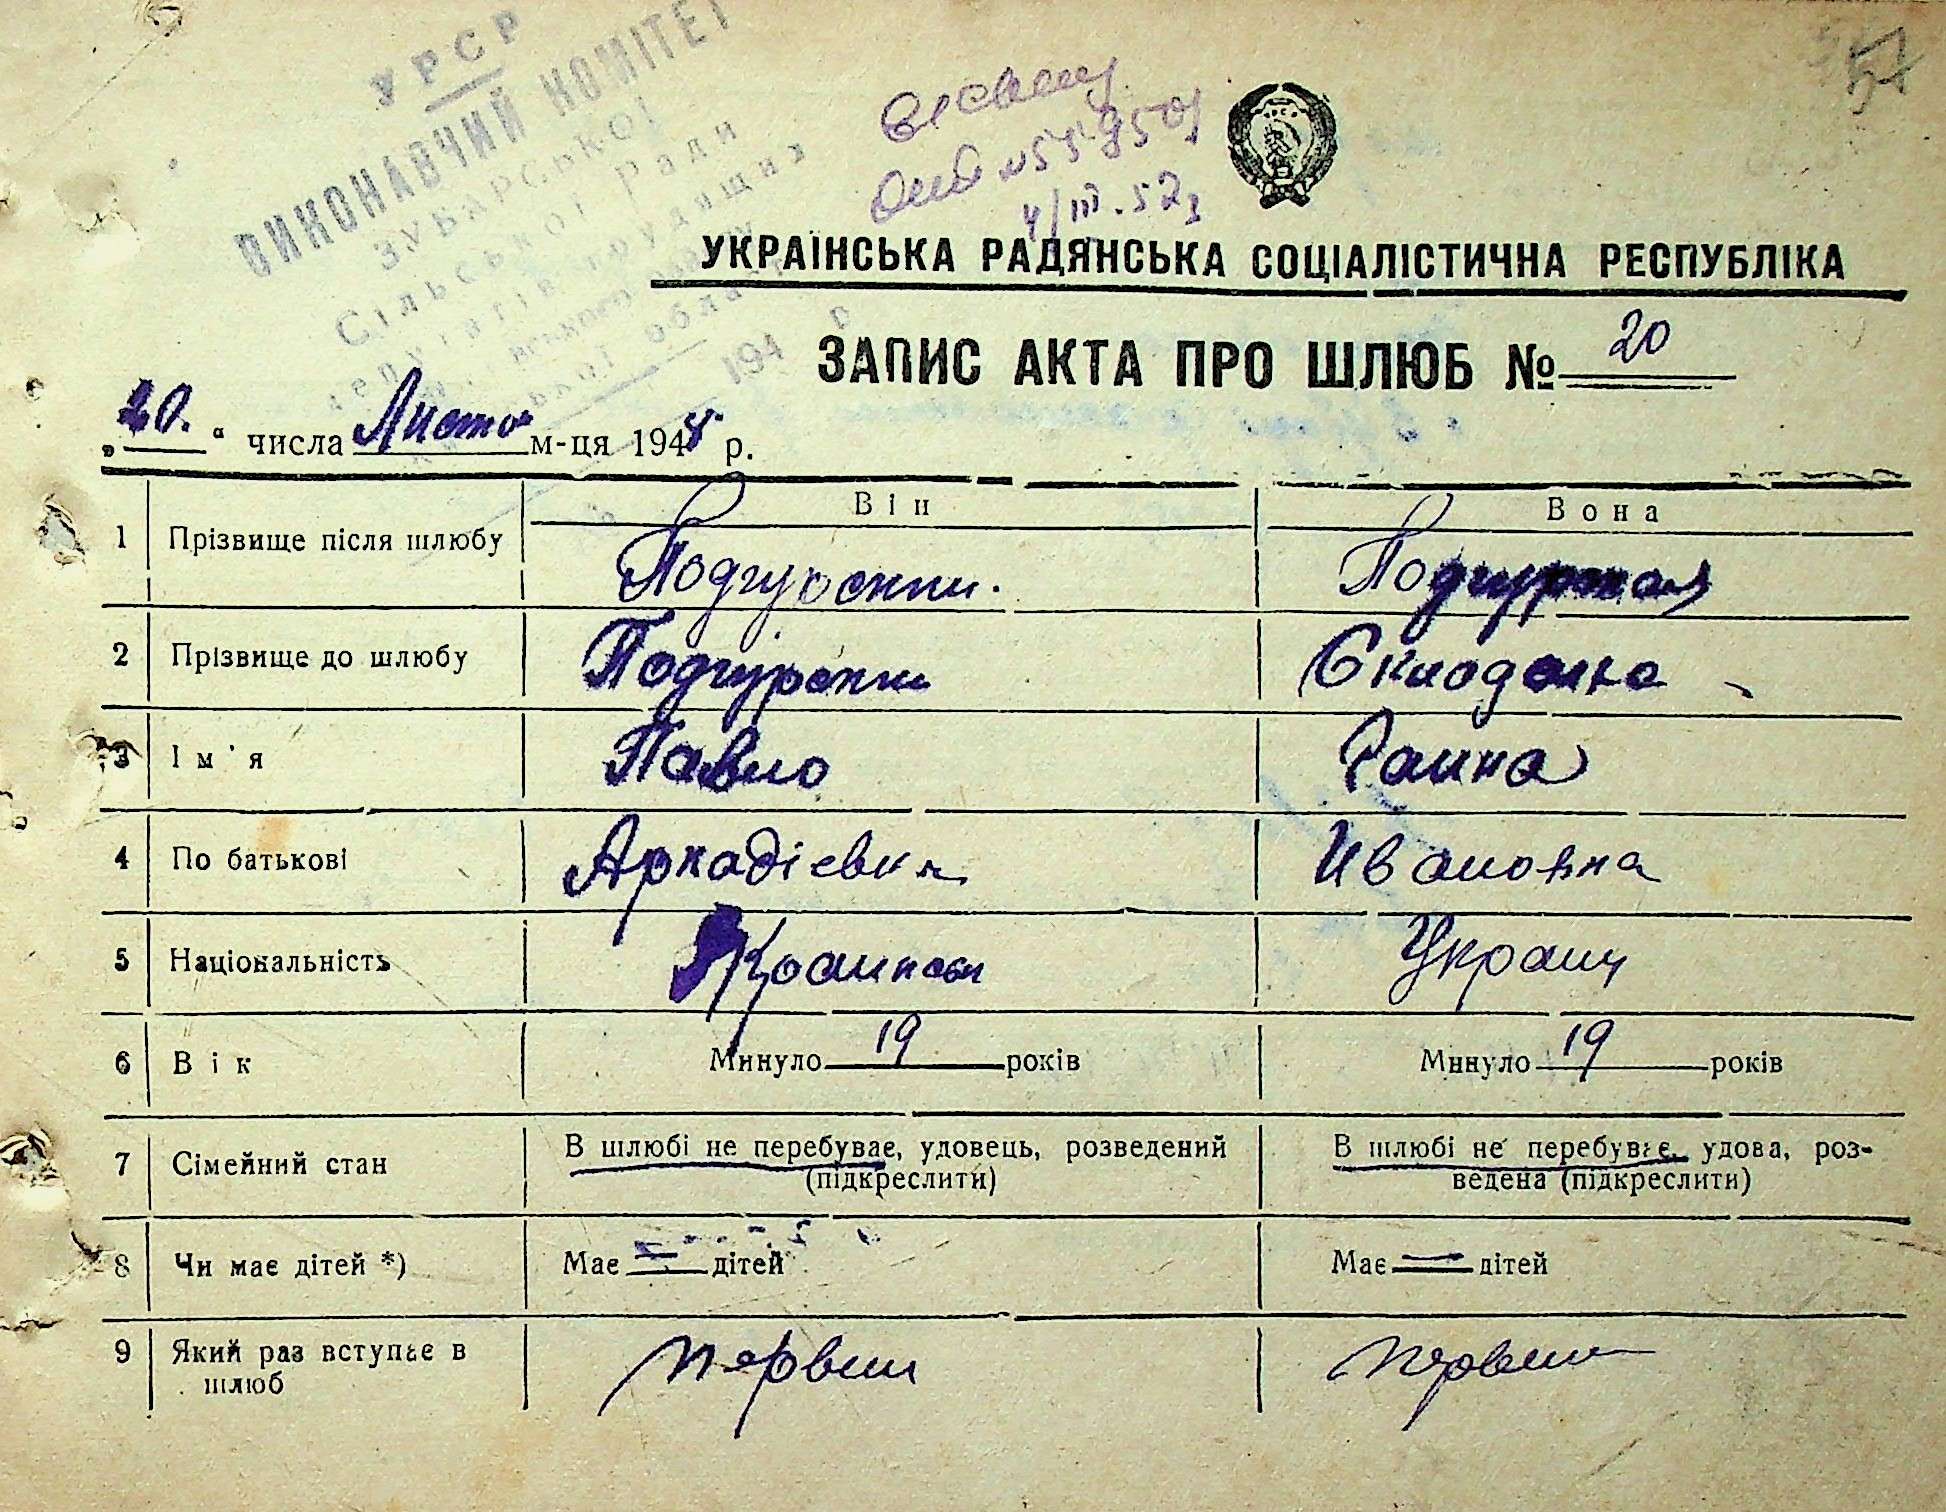 УРСР
ВИКОНАВЧИЙ КОМІТЕТ
ЗУБАРСЬКОЇ
Сільської ради
депутатів трудящих
області
194 р
4/III.52
57
УКРАЇНСЬКА РАДЯНСЬКА СОЦІАЛІСТИЧНА РЕСПУБЛІКА
ЗАПИС АКТА ПРО ШЛЮБ № 20
„20.“ числа Листо м-ця 1948 р.
Він Вона
1 Прізвище після шлюбу Подгурскки. Подгурская
2 Прізвище до шлюбу Подгурскки
3 Ім'я Павло Раина
4 По батькові Аркадієвич Ивановна
5 Національність Украинец Украин
6 Вік Минуло 19 років Минуло 19 років
7 Сімейний стан В шлюбі не перебуває, удовець, розведений В шлюбі не перебуває, удова, роз-
(підкреслити) ведена (підкреслити)
8 Чи має дітей *) Має — дітей Має — дітей
9 Який раз вступає в первий первий
шлюб